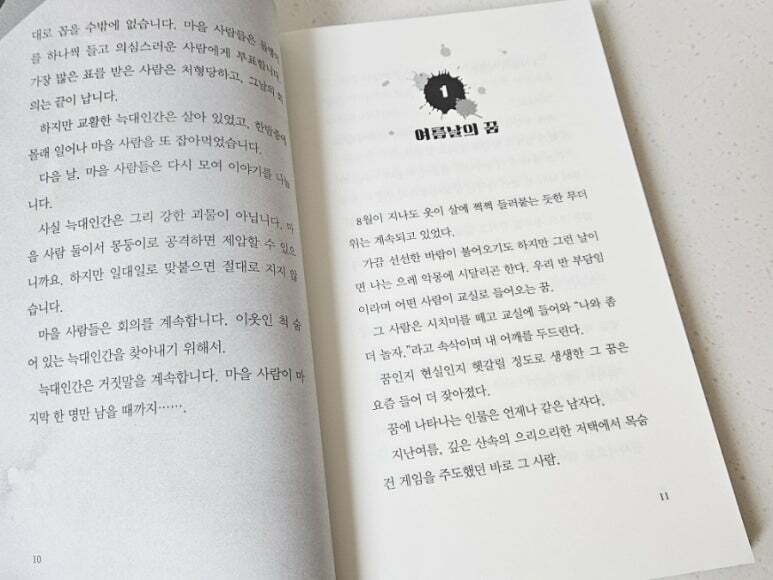 대로 꼽을 수밖에 없습니다. 마을 사람들은
를 하나씩 들고 의심스러운 사람에게 투표합니다.
가장 많은 표를 받은 사람은 처형당하고, 그날의 회
의는 끝이 납니다.
하지만 교활한 늑대인간은 살아 있었고, 한밤중에
몰래 일어나 마을 사람을 또 잡아먹었습니다.
다음 날. 마을 사람들은 다시 모여 이야기를 나눕
니다.
사실 늑대인간은 그리 강한 괴물이 아닙니다. 마
을 사람 둘이서 몽둥이로 공격하면 제압할 수 있으
니까요. 하지만 일대일로 맞붙으면 절대로 지지 않
습니다.
마을 사람들은 회의를 계속합니다. 이웃인 척 숨
어 있는 늑대인간을 찾아내기 위해서.
늑대인간은 거짓말을 계속합니다. 마을 사람이 마
지막 한 명만 남을 때까지…….
10
1
여름날의 꿈
8월이 지나도 옷이 살에 쩍쩍 들러붙는 듯한 무더
위는 계속되고 있었다.
가끔 선선한 바람이 불어오기도 하지만 그런 날이
면 나는 으레 악몽에 시달리곤 한다. 우리 반 부담임
이라며 어떤 사람이 교실로 들어오는 꿈.
그 사람은 시치미를 떼고 교실에 들어와 “나와 좀
더 놀자.”라고 속삭이며 내 어깨를 두드린다.
꿈인지 현실인지 헷갈릴 정도로 생생한 그 꿈은
요즘 들어 더 잦아졌다.
꿈에 나타나는 인물은 언제나 같은 남자다.
지난여름, 깊은 산속의 으리으리한 저택에서 목숨
건 게임을 주도했던 바로 그 사람.
11